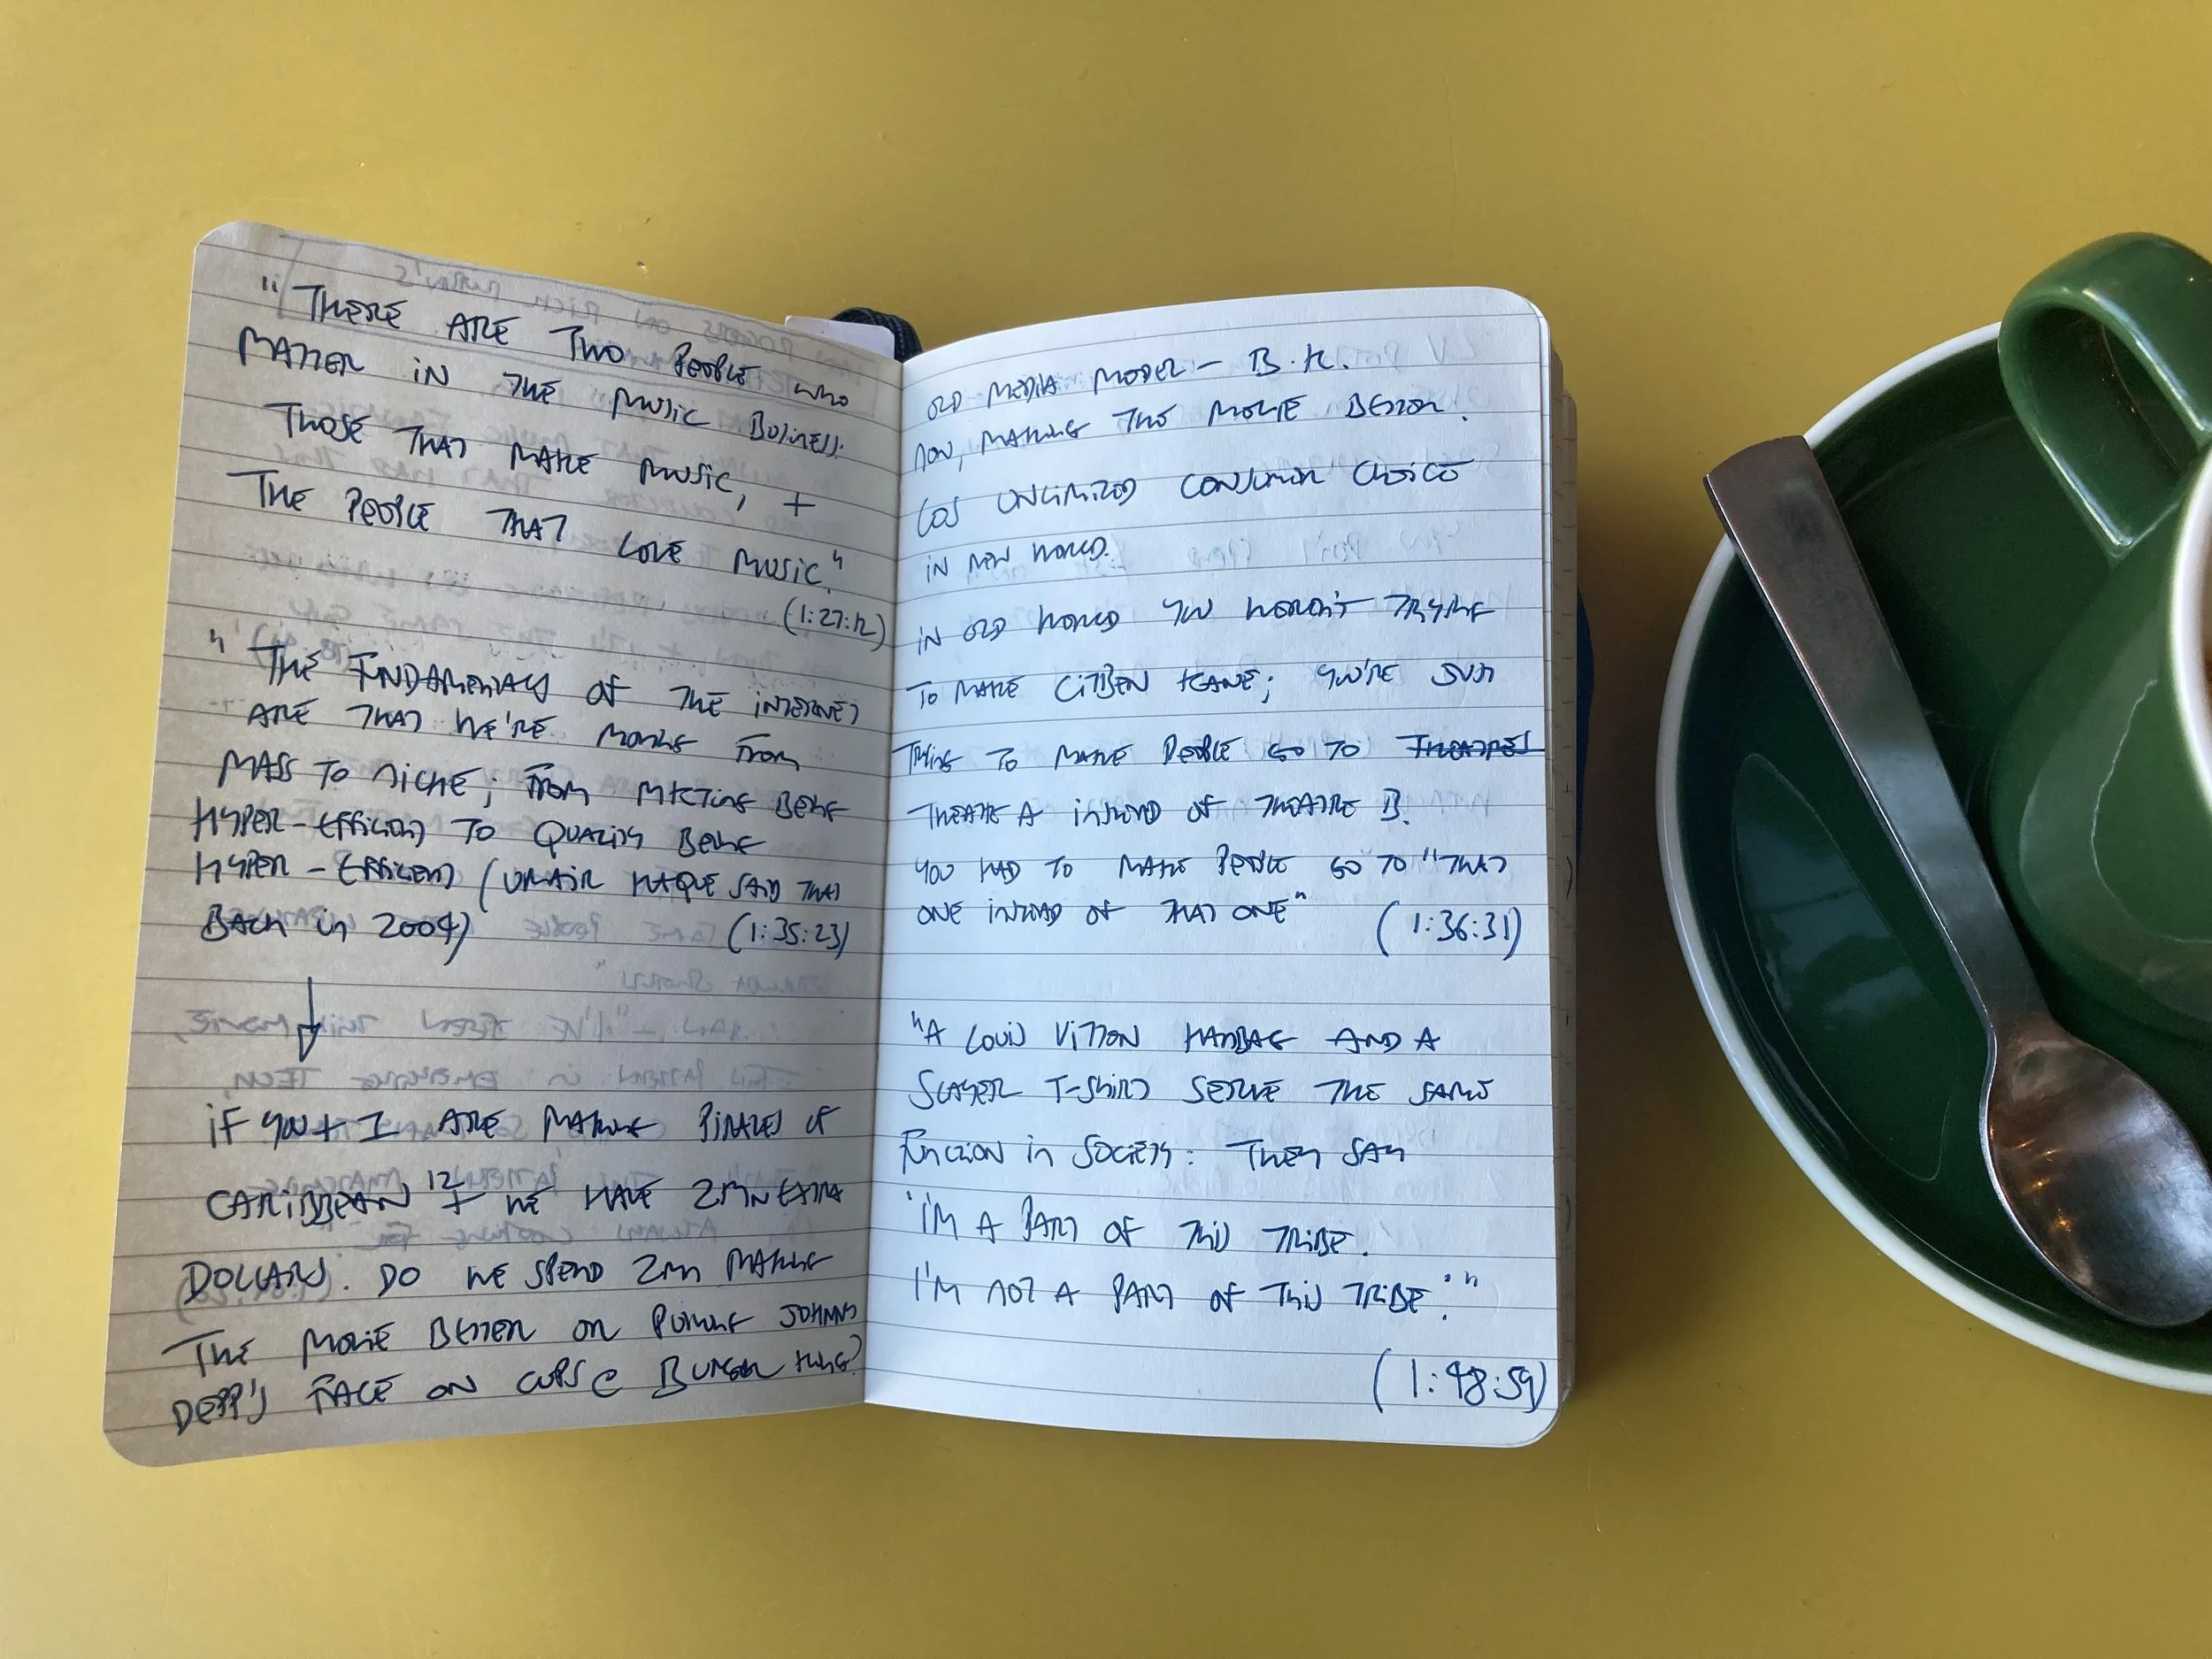 "THERE ARE TWO PEOPLE WHO
MATTER IN THE MUSIC BUSINESS:
THOSE THAT MAKE MUSIC, +
THE PEOPLE THAT LOVE MUSIC."
(1:27:12)
"THE FUNDAMENTALS OF THE INTERNET
ARE THAT WE'RE MOVING FROM
MASS TO NICHE; FROM MKTING BEING
HYPER-EFFICIENT TO QUALITY BEING
HYPER-EFFICIENT (UMAIR HAQUE SAID THAT
BACK IN 2004) (1:35:23)
↓
IF YOU + I ARE MAKING PIRATES OF
CARIBBEAN 12 + WE HAVE 2MN EXTRA
DOLLARS. DO WE SPEND 2MN MAKING
THE MOVIE BETTER OR PUTTING JOHNNY
DEPP'S FACE ON CUPS @ BURGER KING?
OLD MEDIA MODEL - B.K.
NOW, MAKING THE MOVIE BETTER.
COS UNLIMITED CONSUMER CHOICE
IN NEW WORLD.
IN OLD WORLD YOU WEREN'T TRYING
TO MAKE CITIZEN KANE; YOU'RE JUST
TRYING TO MAKE PEOPLE GO TO THEATRES
THEATRE A INSTEAD OF THEATRE B.
YOU HAD TO MAKE PEOPLE GO TO "THAT
ONE INSTEAD OF THAT ONE" (1:36:31)
"A LOUIS VITTON HANDBAG AND A
SLAYER T-SHIRT SERVE THE SAME
FUNCTION IN SOCIETY: THEY SAY
'I'M A PART OF THIS TRIBE.
I'M NOT A PART OF THIS TRIBE.'"
(1:48:59)